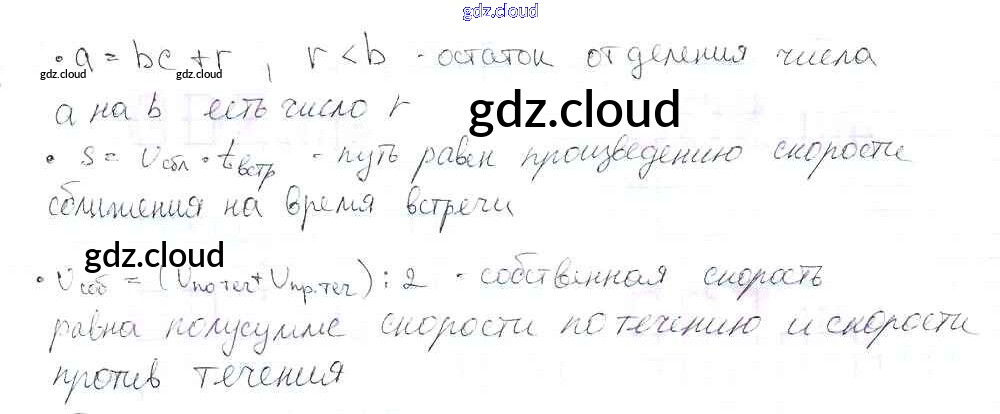 gdz.cloud
• a = bc + r , r < b - остаток от деления числа
gdz.cloud gdz.cloud
a на b есть число r
gdz.cloud
• s = υсбл • tвстр - путь равен произведению скорости
сближения на время встречи
gdz.cloud
• υсоб = (υпо теч + υпр.теч) : 2 - собственная скорость
равна полусумме скорости по течению и скорости
против течения